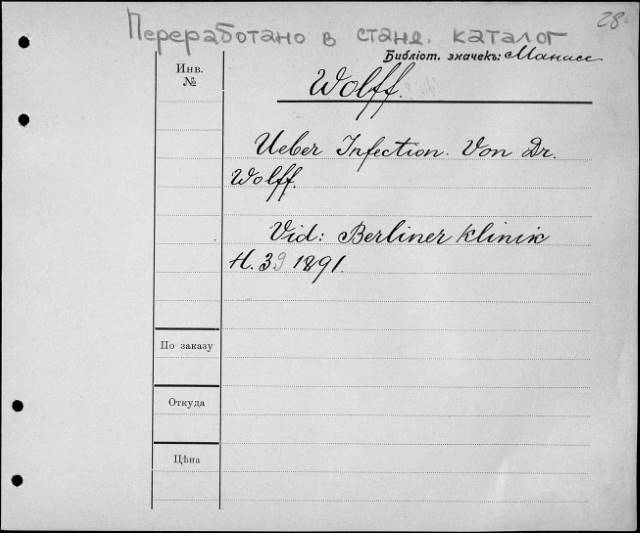 28.
Переработано в станд. каталог
Библіот. значекъ: Манасс
Инв.
№
Wolff.
Ueber Infection. Von Dr.
Wolff.
Vid: Berliner Klinik
H. 39 1891.
По заказу
Откуда
Цѣна